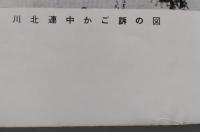 川北連中かご訴の図